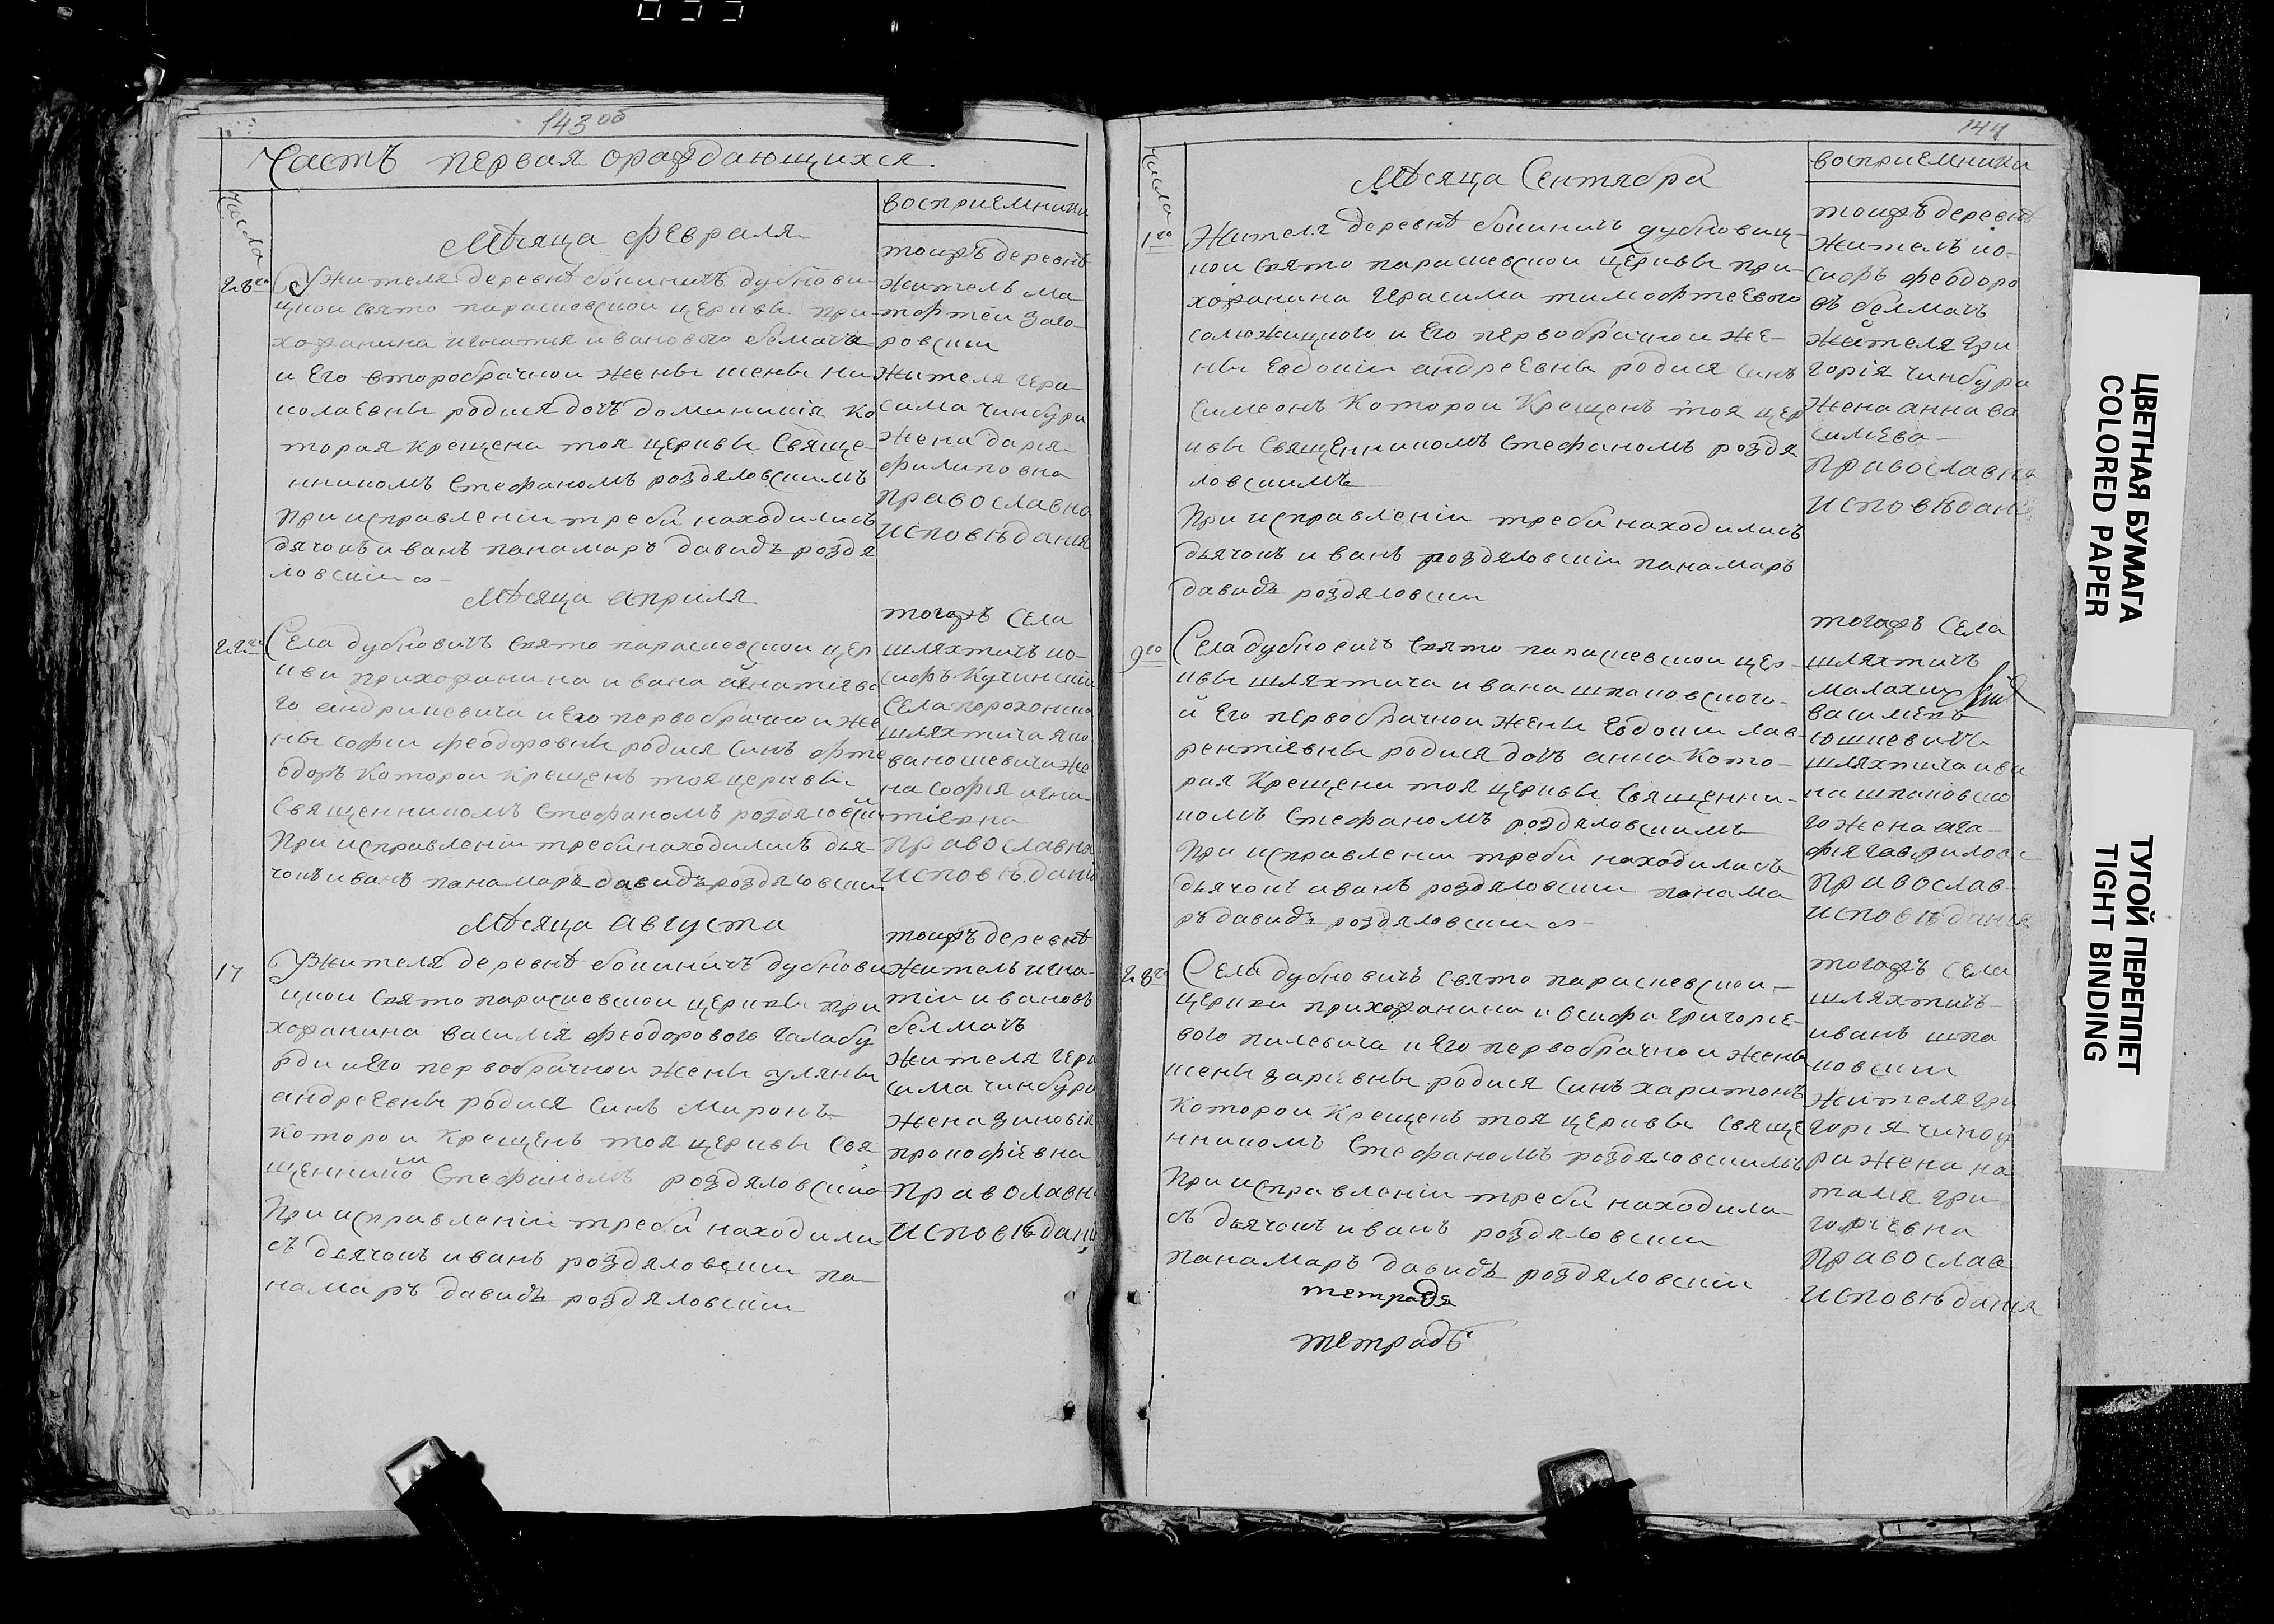 143 об
Часть первая ораждающихся.
числа
восприемники
Мѣсяца февраля
28го
У жителя деревнѣ бокиничъ дубнови
цкои свято параскевскои церкви при
хожанина игнатия иванового белмача
и его второбрачнои жены ксены ни
колаевны родися дочъ доминикія ко
торая крещена тоя церквы свяще
нникомъ стефаномъ роздяловскимъ
При исправленіи треби находились
дячокъ иванъ панамаръ давидъ роздя
ловскіи
тоижъ деревнѣ
житель ма
тофтеи заго
ровскии
жителя гера
сима чинбура
жена дарія
филиповна
православно
исповѣдания
Мѣсяца априля
22го
Села дубновичъ свято параскевскои цер
кви прихожанина ивана игнатіево
го андриневича и его первобрачнои же
ны софии феодоровны родися синъ фте
одоръ которои крещенъ тоя церквы
священникомъ стефаномъ роздяловски
При исправленіи треби находились дья
чокъ иванъ панамаръ давидъ роздяловски
тогожъ села
шляхтичъ ио
сифъ Кучинскіи
села порохонска
шляхтича яко
ваношевича же
на софія игна
тіевна
православна
исповѣдани
Мѣсяца августа
17
У жителя деревнѣ бокиничъ дубнови
цкои свято параскевскои церквы при
хожанина василія феодорового галабу
рди и его первобрачнои жены улянны
андреевны родися синъ Миронъ
которои крещенъ тоя церквы свя
щенникомъ стефаномъ роздяловски
При исправленіи треби находили
съ дьячокъ иванъ роздяловскии па
намаръ давидъ роздяловскіи
тоижъ деревнѣ
житель игна
тіи ивановъ
белмачъ
жителя гера
сима чинбуро
жена зиновія
прокофіевна
православн
исповѣдани
144
числа
восприемники
Мѣсяца Сентября
1го
Жителя деревнѣ бокиничъ дубновиц
кои свято параскевскои церквы при
хожанина герасима тимофтеевого
солюжицкого и его первобрачнои же
ны евдокіи андреевны родися синъ
симеонъ которои крещенъ тоя цер
квы священникомъ стефаномъ роздя
ловскимъ
При исправленіи треби находились
дьячокъ иванъ роздяловскіи панамаръ
давидъ роздяловски
тоижъ деревнѣ
житель ио
сифъ феодоро
въ белмачъ
жителя гри
горія чинбура
жена анна ва
силева
православна
исповѣдані
9го
Села дубновичъ свято параскевскои цер
квы шляхтича ивана шпаковского
и его первобрачнои жены евдокии лав
рентіевны родися дочъ анна кото
рая крещена тоя церквы священни
комъ стефаномъ роздяловскимъ
При исправлении треби находились
дьячокъ иванъ роздяловскии панама
ръ давидъ роздяловскии
тогожъ села
шляхтичъ
малахии
василевъ
юшкевичъ
шляхтича ива
на шпаковско
го жена ага
фія гаврилов
православ
исповѣдания
28го
Села дубновичъ свято параскевскои
церкви прихожанина иосифа григорие
вого пилевича и его первобрачнои жены
ксены заріевны родися синъ харитонъ
которои крещенъ тоя церквы свяще
нникомъ стефаномъ роздяловскимъ
При исправленіи треби находили
съ дьячокъ иванъ роздяловскии
панамаръ давидъ роздяловскіи
тогожъ села
шляхтичъ
иванъ шпа
ковскии
жителя гри
горія чинбу
ра жена на
талія гри
горіевна
православ
исповѣданія
тетрадъ
тетрадь
ЦВЕТНАЯ БУМАГА
COLORED PAPER
ТУГОЙ ПЕРЕПЛЕТ
TIGHT BINDING